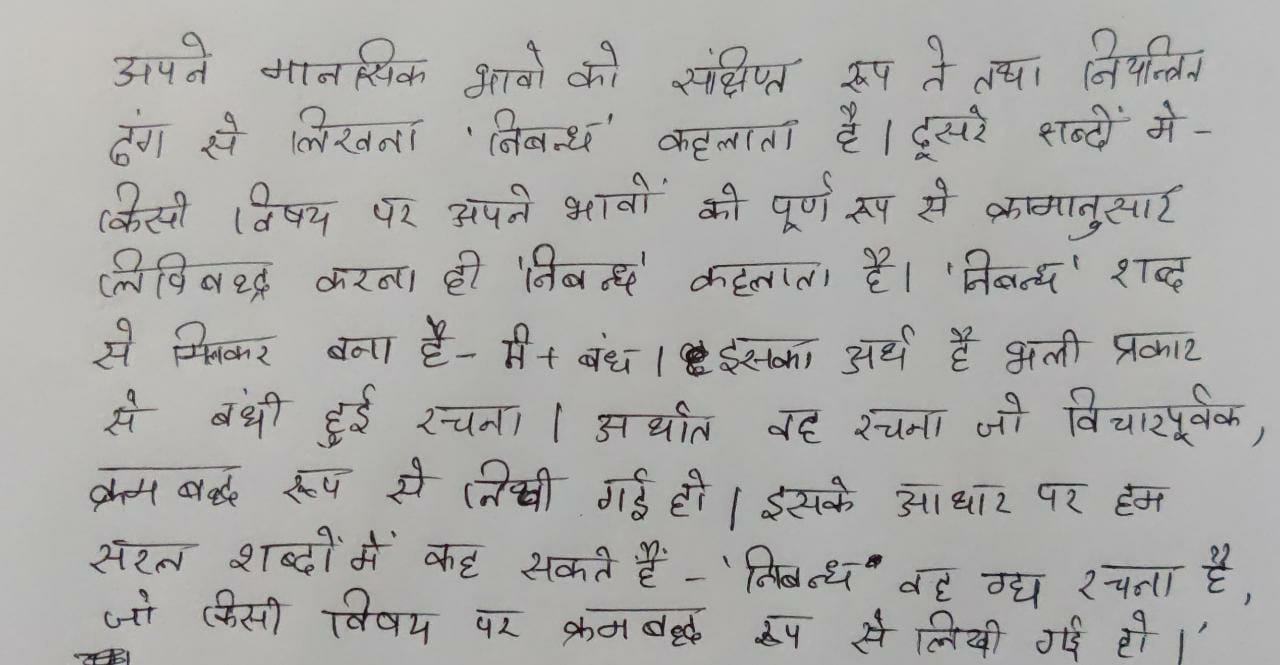 अपने मानसिक भावो को संक्षिप्त रूप ते तथा नियन्त्रित
ढंग से लिखना 'निबन्ध' कहलाता है। दूसरे शब्दों मे -
किसी विषय पर अपने भावों को पूर्ण रूप से क्रामानुसार
लिपिबध्द करना ही 'निबन्ध' कहलाता है। 'निबन्ध' शब्द
से मिलकर बना है - नी + बंध। इसका अर्थ है भली प्रकार
से बंधी हुई रचना। अर्थात वह रचना जो विचारपूर्वक,
क्रमबद्ध रूप से लिखी गई हो। इसके आधार पर हम
सरल शब्दों में कह सकते हैं - 'निबन्ध वह गद्य रचना है,
जो किसी विषय पर क्रमबद्ध रूप से लिखी गई हो।'